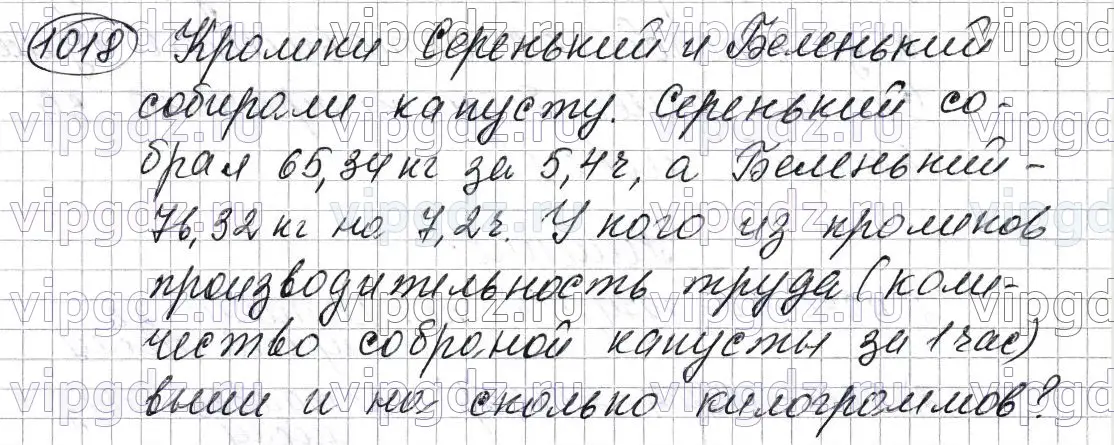 1018 Кролики Серенький и Беленький
собирали капусту. Серенький со-
брал 65,34 кг за 5,4 ч, а Беленький -
76,32 кг на 7,2 ч. У кого из кроликов
производительность труда (коли-
чество собраной капусты за 1 час)
выше и на сколько килограммов?